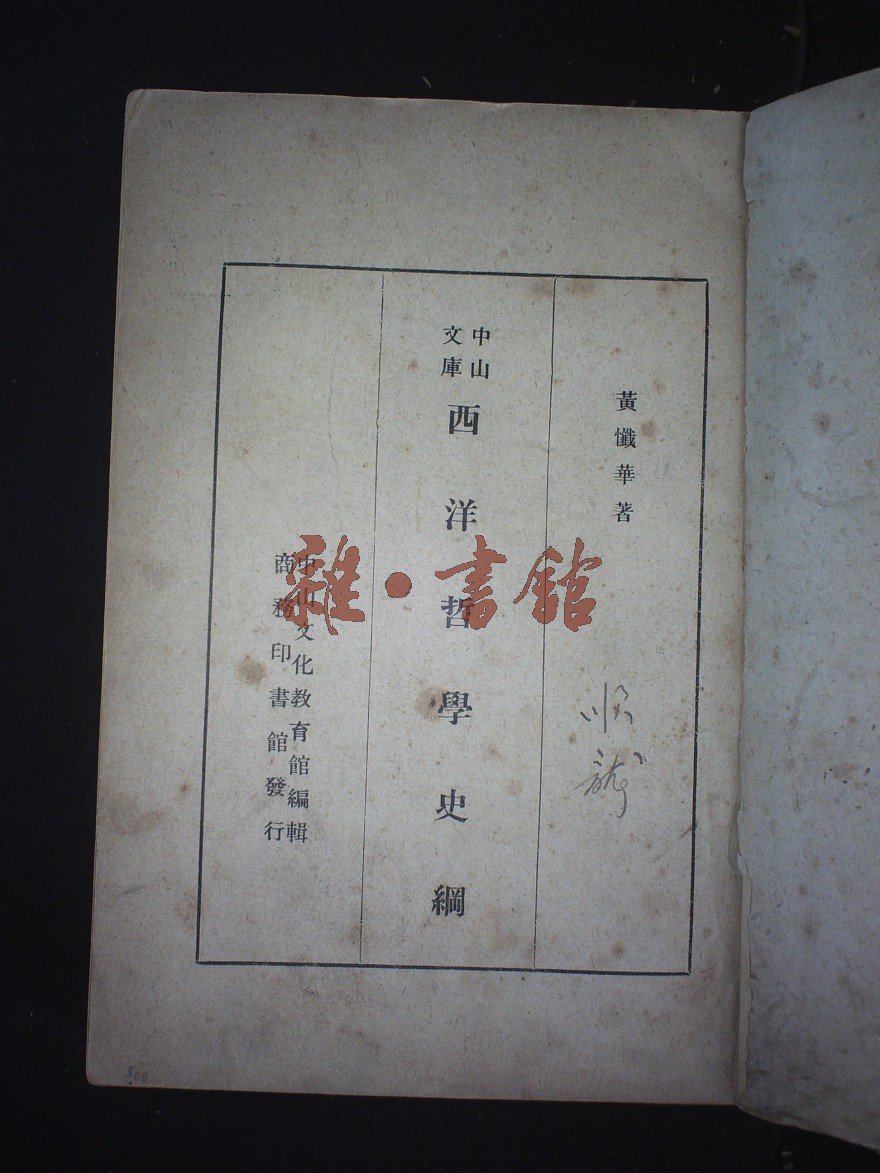 黃懺華著
中山
文庫
西洋哲學史綱
中山文化教育館編輯
商務印書館發行
雜·書館
300